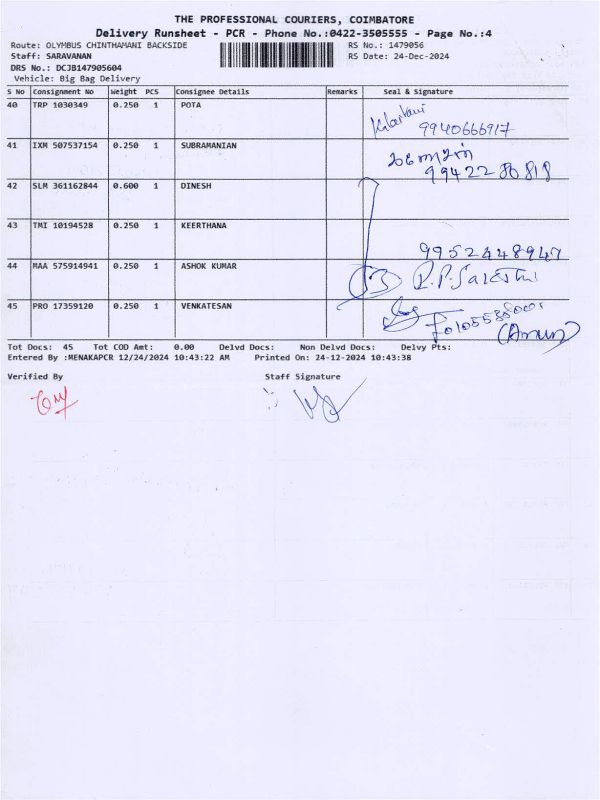 THE PROFESSIONAL COURIERS, COIMBATORE
Delivery Runsheet - PCR - Phone No.:0422-3505555 - Page No.:4
Route: OLYMBUS CHINTHAMANI BACKSIDE RS No.: 1479056
Staff: SARAVANAN RS Date: 24-Dec-2024
DRS No.: DCJB147905604
Vehicle: Big Bag Delivery
S No Consignment No Weight PCS Consignee Details Remarks Seal & Signature
40 TRP 1030349 0.250 1 POTA
9940666917
41 IXM 507537154 0.250 1 SUBRAMANIAN
42 SLM 361162844 0.600 1 DINESH
43 TMI 10194528 0.250 1 KEERTHANA
9952448947
44 MAA 575914941 0.250 1 ASHOK KUMAR
45 PRO 17359120 0.250 1 VENKATESAN
(Arun)
Tot Docs: 45 Tot COD Amt: 0.00 Delvd Docs: Non Delvd Docs: Delvy Pts:
Entered By :MENAKAPCR 12/24/2024 10:43:22 AM Printed On: 24-12-2024 10:43:38
Verified By Staff Signature